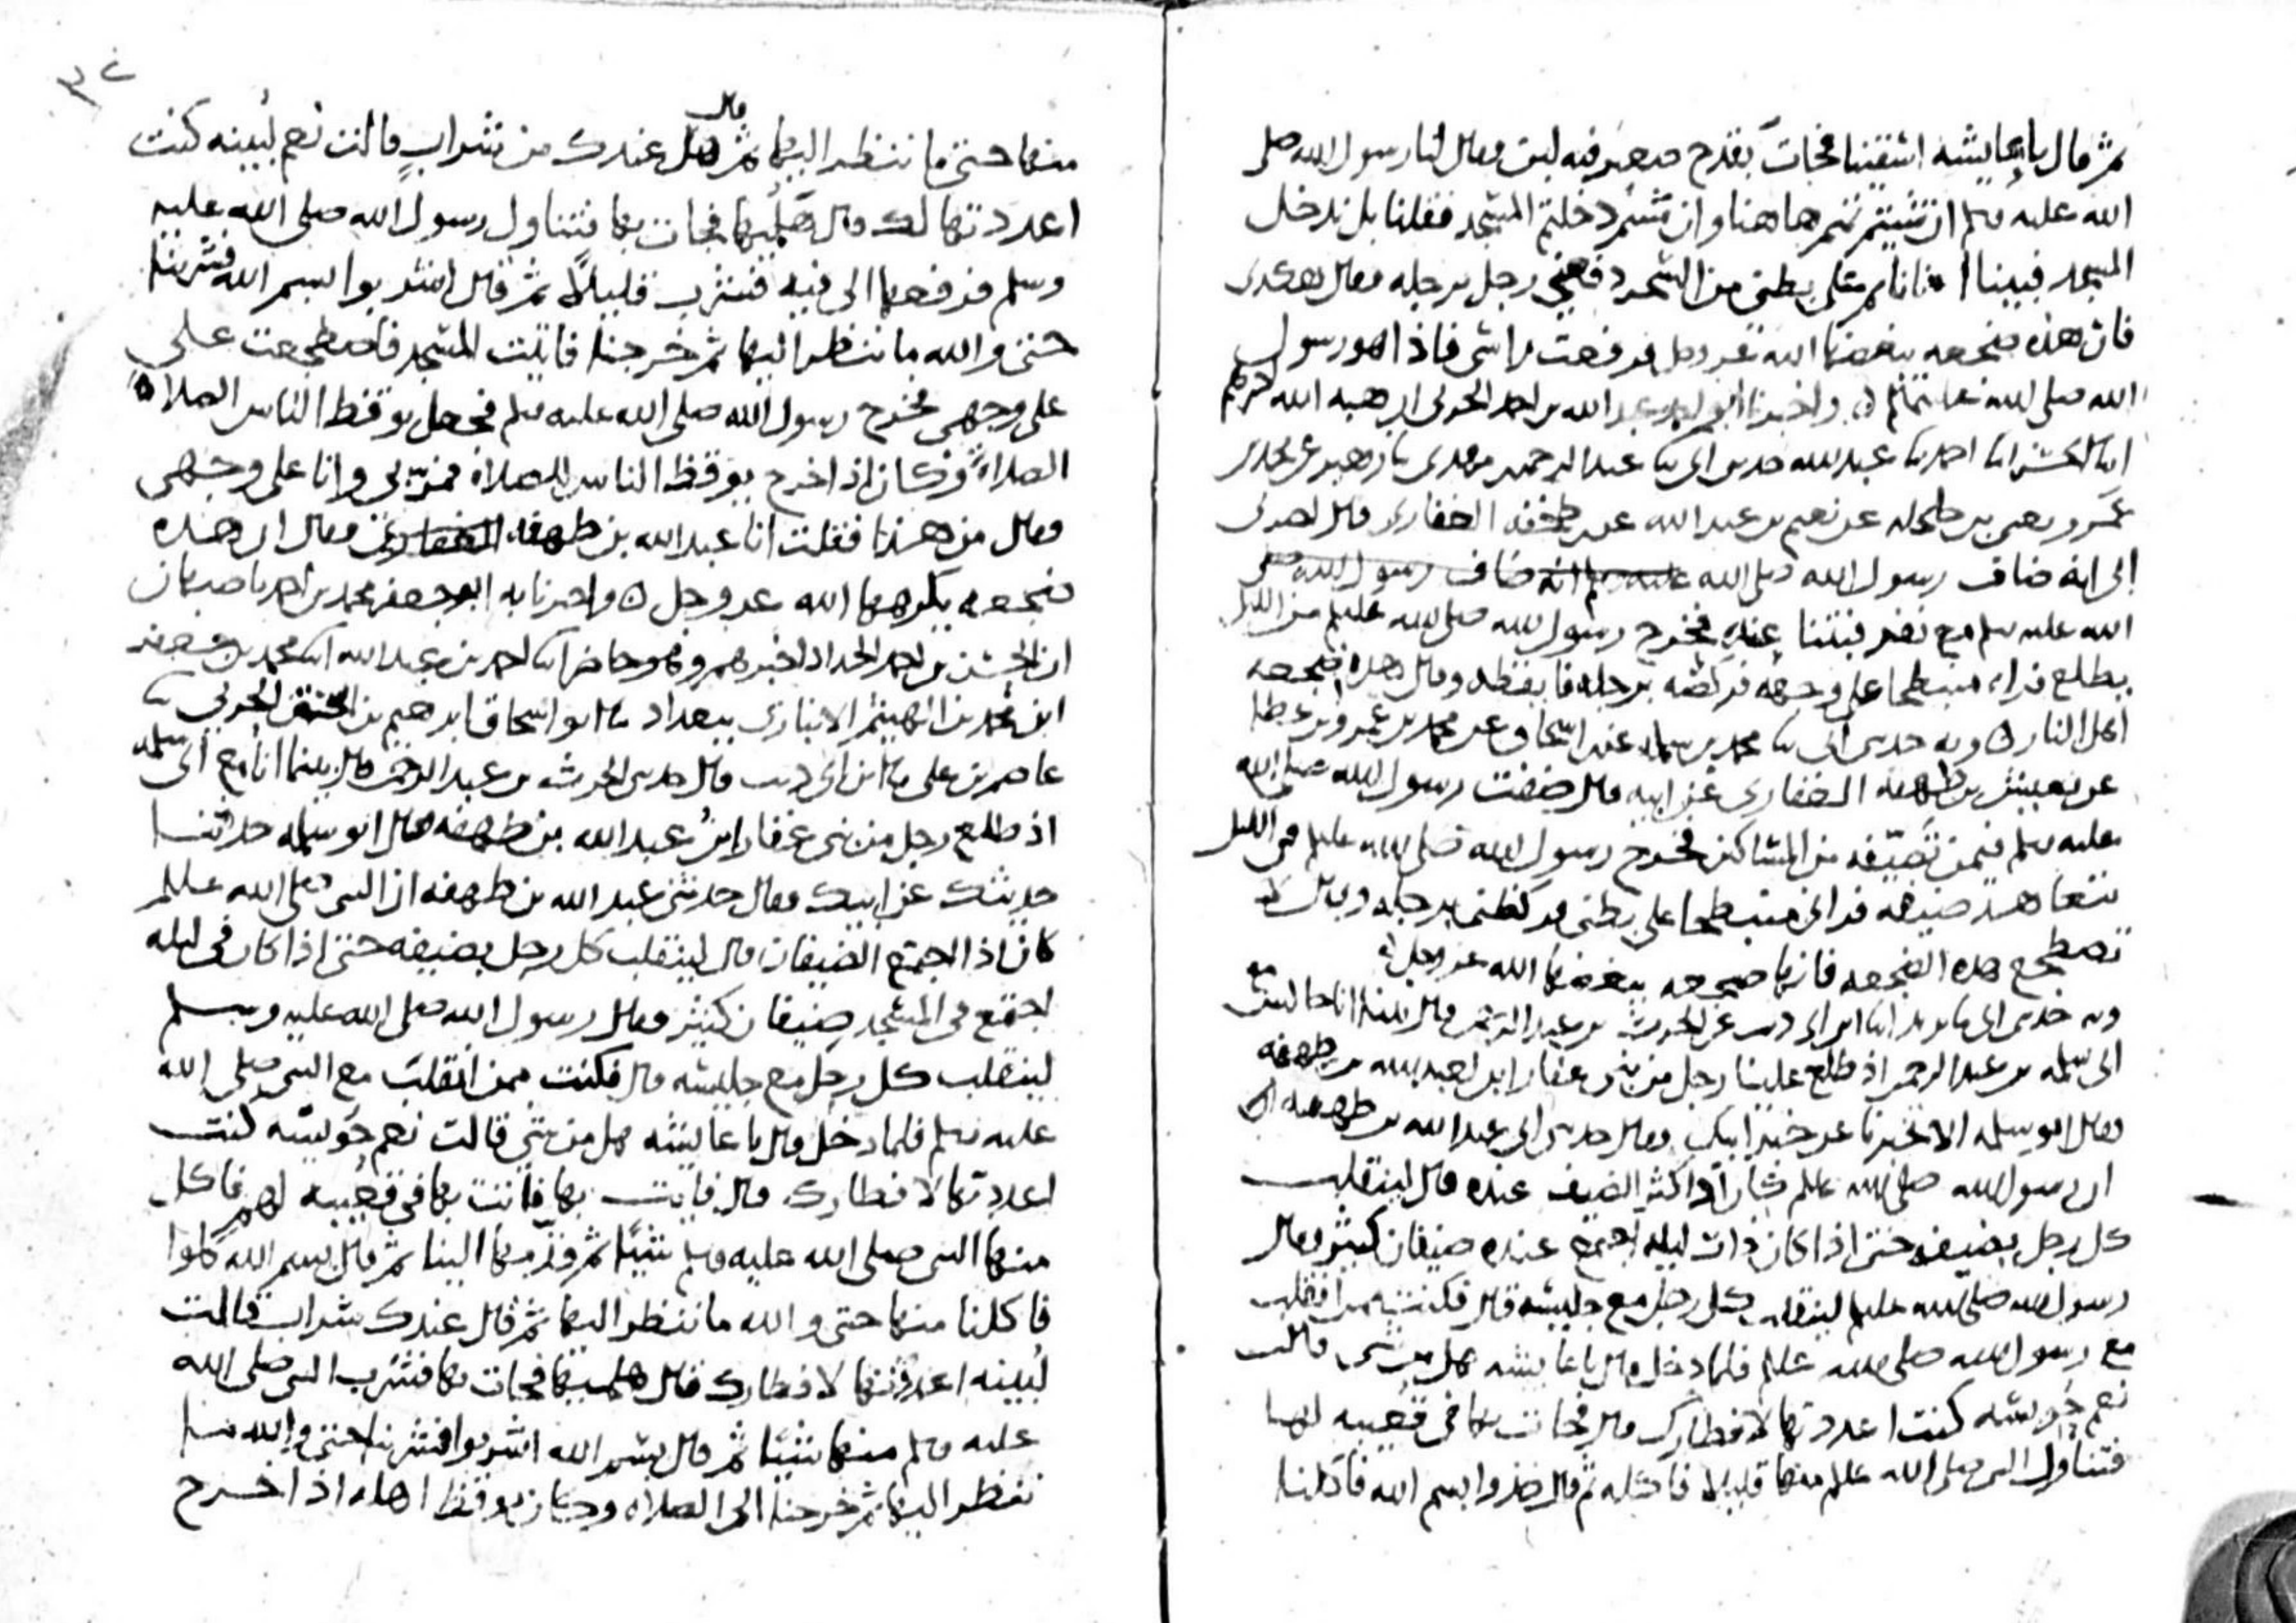 ثم قال يا عايشه اسقينا فجات بقدح صغير فيه لبن وقال لنا رسول الله صلى
الله عليه وسلم ان شيتم نمتم هاهنا وان شئتم دخلتم المسجد فقلنا بل ندخل
المسجد فبينا انا نايم على بطني من السحر دفعني رجل برجله وقال هكذى
فان هذه ضجعه يبغضها الله عز وجل فرفعت راسي فاذا هو رسول
الله صلى الله عليه وسلم ٥ واخبرنا عبد الله بن احمد الحربي هبه الله
احمد عبد الله حدثني ابي عبد الرحمن بن مهدى زهير عن محمد بن
عمرو بن حلحله عن نعيم بن عبد الله عن طخفه الغفاري قال اخبرني
ابي انه ضاف رسول الله صلى الله عليه وسلم انه ضاف رسول الله صلى
الله عليه وسلم مع نفر فبتنا عنده فخرج رسول الله صلى الله عليه وسلم من الليل
يطلع فراه منبطحا على وجهه فركضه برجله فايقظه وقال هذه ضجعه
اهل النار ٥ وبه حدثني ابي محمد بن سلمه عن ابن اسحاق عن محمد بن عمرو بن عطا
عن يعيش بن طهفه الغفاري عن ابيه قال ضفت رسول الله صلى الله
عليه وسلم فيمن تضيفه من المساكين فخرج رسول الله صلى الله عليه وسلم في الليل
يتعاهد ضيفه فراني منبطحا على بطني فركضني برجله وقال لا
تضطجع هذه الضجعه فانها ضجعه يبغضها الله عز وجل ٥
وبه حدثني ابي يزيد ابن ابي ذيب عن الحرث بن عبد الرحمن قال بينا انا جالس مع
ابي سلمه بن عبد الرحمن اذ طلع علينا رجل من بني غفار ابن لعبد الله بن طهفه
وقال ابو سلمه الا تخبرنا عن خبر ابيك وقال حدثني ابي عبد الله بن طهفه
ان رسول الله صلى الله عليه وسلم كان اذا كثر الضيف عنده قال لينقلب
كل رجل بضيفه حتى اذا كان ذات ليله اجتمع عنده ضيفان كثير وقال
رسول الله صلى الله عليه وسلم لينقلب كل رجل مع جليسه قال فكنت ممن انقلب
مع رسول الله صلى الله عليه وسلم فلما دخل قال يا عايشه هل من شى قالت
نعم حويسه كنت اعددتها لافطارك قال فجات بها في قعيبه لها
فتناول النبي صلى الله عليه وسلم منها قليلا فاكله ثم قال خذوا بسم الله فاكلنا
٣٤
منها حتى ما ننظر اليها ثم قال هل عندك من شراب قالت نعم لبينه كنت
اعددتها لك قال هلميها فجات بها فتناول رسول الله صلى الله عليه
وسلم فرفعها الى فيه فشرب قليلا ثم قال اشربوا بسم الله فشربنا
حتى والله ما ننظر اليها ثم خرجنا فاتيت المسجد فاضطجعت على
على وجهي فخرج رسول الله صلى الله عليه وسلم فجعل يوقظ الناس الصلاه
الصلاه وكان اذا خرج يوقظ الناس للصلاه فمر بي وانا على وجهي
وقال من هذا فقلت انا عبد الله بن طهفه الغفاري وقال ان هذه
ضجعه يكرهها الله عز وجل ٥ واخبرنا به ابو جعفر محمد بن احمد باصبهان
ان الحسن بن احمد الحداد اخبرهم وهو حاضر احمد بن عبد الله محمد بن جعفر
ابن محمد بن الهيثم الانباري ببغداد ابو اسحاق ابرهيم بن اسحق الحربي
عاصم بن علي ابن ابي ذيب قال حدثني الحرث بن عبد الرحمن قال بينما انا مع ابي سلمه
اذ طلع رجل من بني غفار ابن عبد الله بن طهفه قال ابو سلمه حدثنا
حديثك عن ابيك وقال حدثني عبد الله بن طهفه ان النبي صلى الله عليه وسلم
كان اذا اجتمع الضيفان قال لينقلب كل رجل بضيفه حتى اذا كان في ليله
اجتمع في المسجد ضيفان كثير وقال رسول الله صلى الله عليه وسلم
لينقلب كل رجل مع جليسه قال فكنت ممن انقلب مع النبي صلى الله
عليه وسلم فلما دخل قال يا عايشه هل من شي قالت نعم حويسه كنت
اعددتها لافطارك قال فاتت بها في قعيبه لهم فاكل
منها النبي صلى الله عليه وسلم شيئا ثم قدمها الينا ثم قال بسم الله كلوا
فاكلنا منها حتى والله ما ننظر اليها ثم قال عندك شراب قالت
لبينه اعددتها لافطارك قال هلميها فجات بها فشرب النبي صلى الله
عليه وسلم منها شيئا ثم قال بسم الله اشربوا فشربنا حتى والله ما
ننظر اليها ثم خرجنا الى الصلاه وكان يوقظ اهله اذا خرج